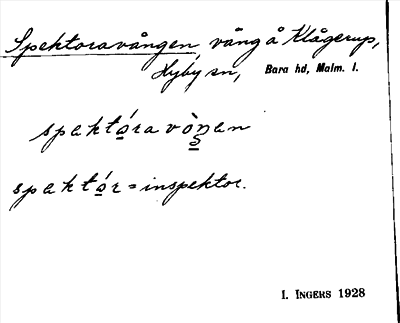 Spektoravången, vång å Klågerup,
Hyby sn, Bara hd, Malm. l.
spektǫ́ravò̜ŋen
spektǫ́r = inspektor.
I. INGERS 1928